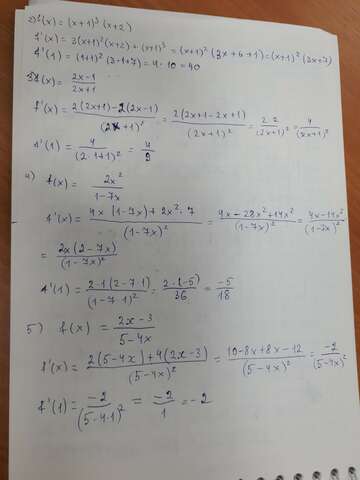 2) f(x) = (x+1)³ (x+2)
f'(x) = 3(x+1)²(x+2) + (x+1)³ = (x+1)² (3x+6+1) = (x+1)² (3x+7)
f'(1) = (1+1)² (3·1+7) = 4·10 = 40
3) f(x) = (2x-1)/(2x+1)
f'(x) = (2(2x+1) - 2(2x-1))/(2x+1)² = (2(2x+1-2x+1))/(2x+1)² = (2·2)/(2x+1)² = 4/(2x+1)²
f'(1) = 4/(2·1+1)² = 4/9
4) f(x) = 2x²/(1-7x)
f'(x) = (4x(1-7x) + 2x²·7)/(1-7x)² = (4x - 28x² + 14x²)/(1-7x)² = (4x - 14x²)/(1-7x)²
= 2x(2-7x)/(1-7x)²
f'(1) = (2·1(2-7·1))/(1-7·1)² = (2·(-5))/36 = -5/18
5) f(x) = (2x-3)/(5-4x)
f'(x) = (2(5-4x) + 4(2x-3))/(5-4x)² = (10-8x+8x-12)/(5-4x)² = -2/(5-4x)²
f'(1) = -2/(5-4·1)² = -2/1 = -2